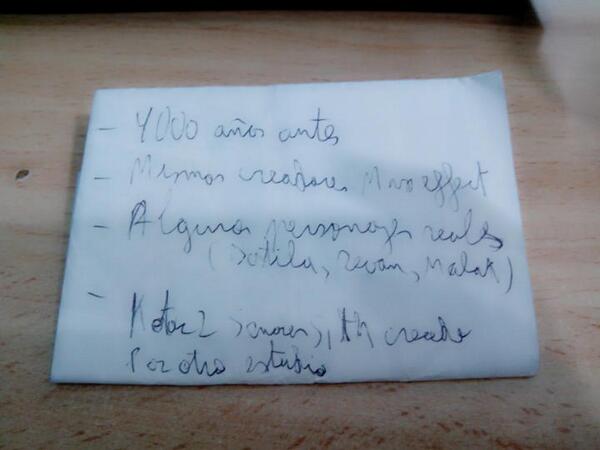 - 4000 años antes
- Mismos creadores Mass effect
- Algunos personajes reales
(Bastila, Revan, Malak)
- Kotor 2 sith creado
por otro estudio